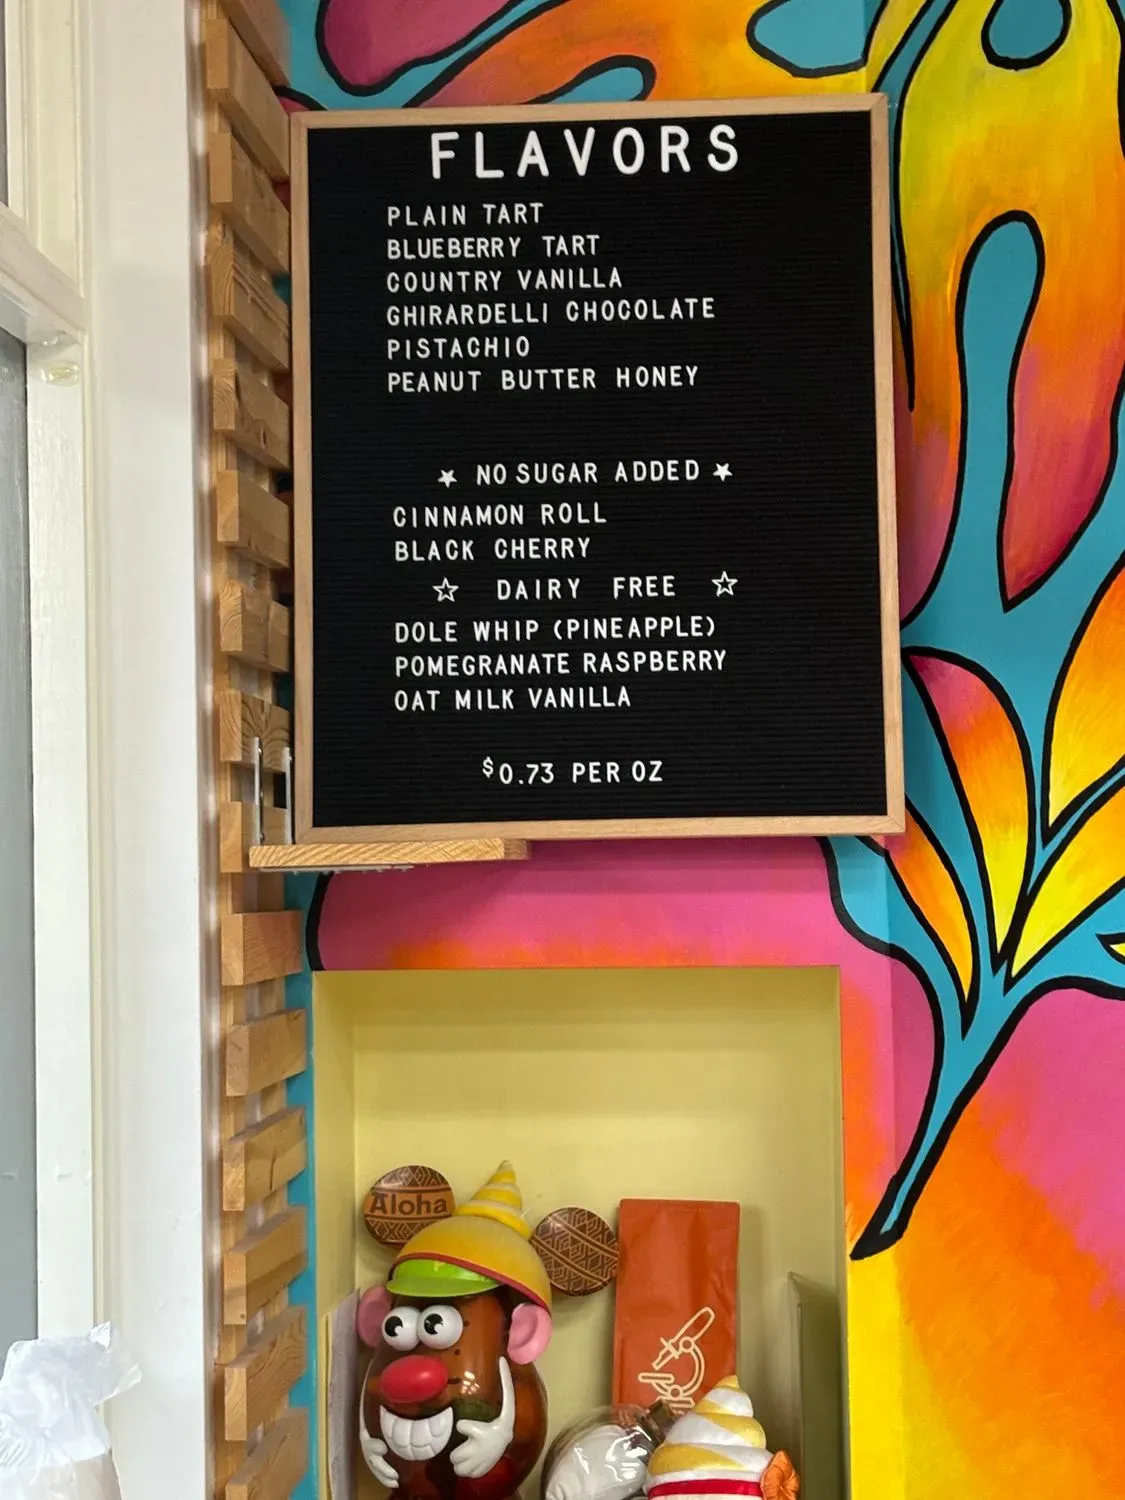 FLAVORS
PLAIN TART
BLUEBERRY TART
COUNTRY VANILLA
GHIRARDELLI CHOCOLATE
PISTACHIO
PEANUT BUTTER HONEY
★ NO SUGAR ADDED ★
CINNAMON ROLL
BLACK CHERRY
☆ DAIRY FREE ☆
DOLE WHIP (PINEAPPLE)
POMEGRANATE RASPBERRY
OAT MILK VANILLA
$0.73 PER OZ
Aloha